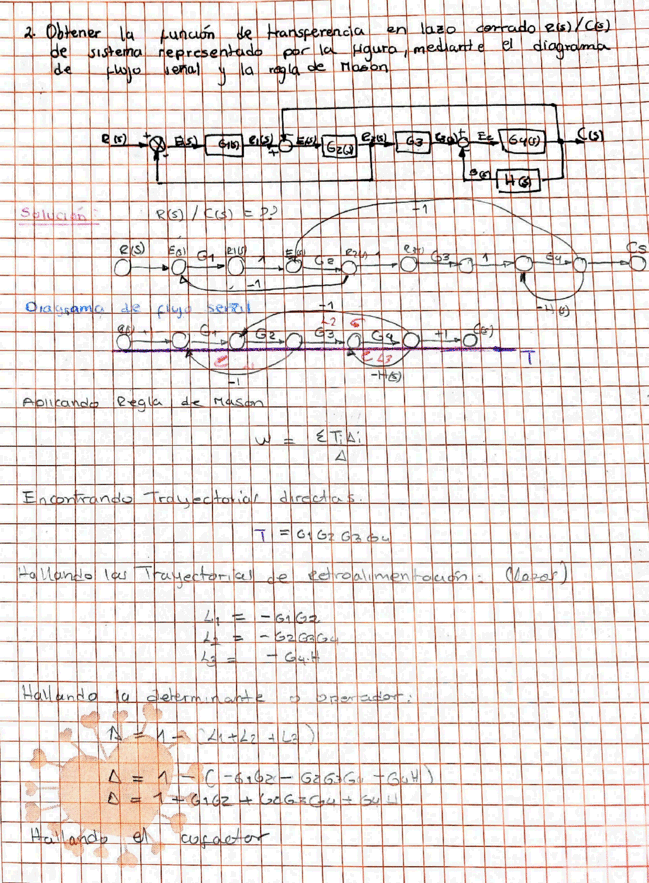 2. Obtener la función de transferencia en lazo cerrado R(s)/C(s)
de sistema representado por la figura, mediante el diagrama
de flujo señal y la regla de Mason
R(s) + E(s) G1(s) R1(s) + E(s) G2(s) R2(s) G3 + Ec G4(s) C(s)
H(s)
Solución: R(s) / C(s) = ??
-1
R(s) E(s) G1 R1(s) 1 G2 R2(s) 1 G3 1 G4 Cs
-1 -H(s)
Diagrama de flujo señal
-1
L2
G1 G2 G3 G4 +1 C(s)
L3 T
-1 -H(s)
Aplicando Regla de Mason
W = ΣTiΔi
Δ
Encontrando Trayectorias directas.
T = G1G2G3G4
Hallando las Trayectorias de retroalimentación: (Lazos)
L1 = -G1G2
L2 = -G2G3G4
L3 = -G4.H
Hallando la determinante o operador:
Δ = 1 - (L1+L2+L3)
Δ = 1 - (-G1G2 - G2G3G4 - G4H)
Δ = 1 + G1G2 + G2G3G4 + G4H
Hallando el cofactor